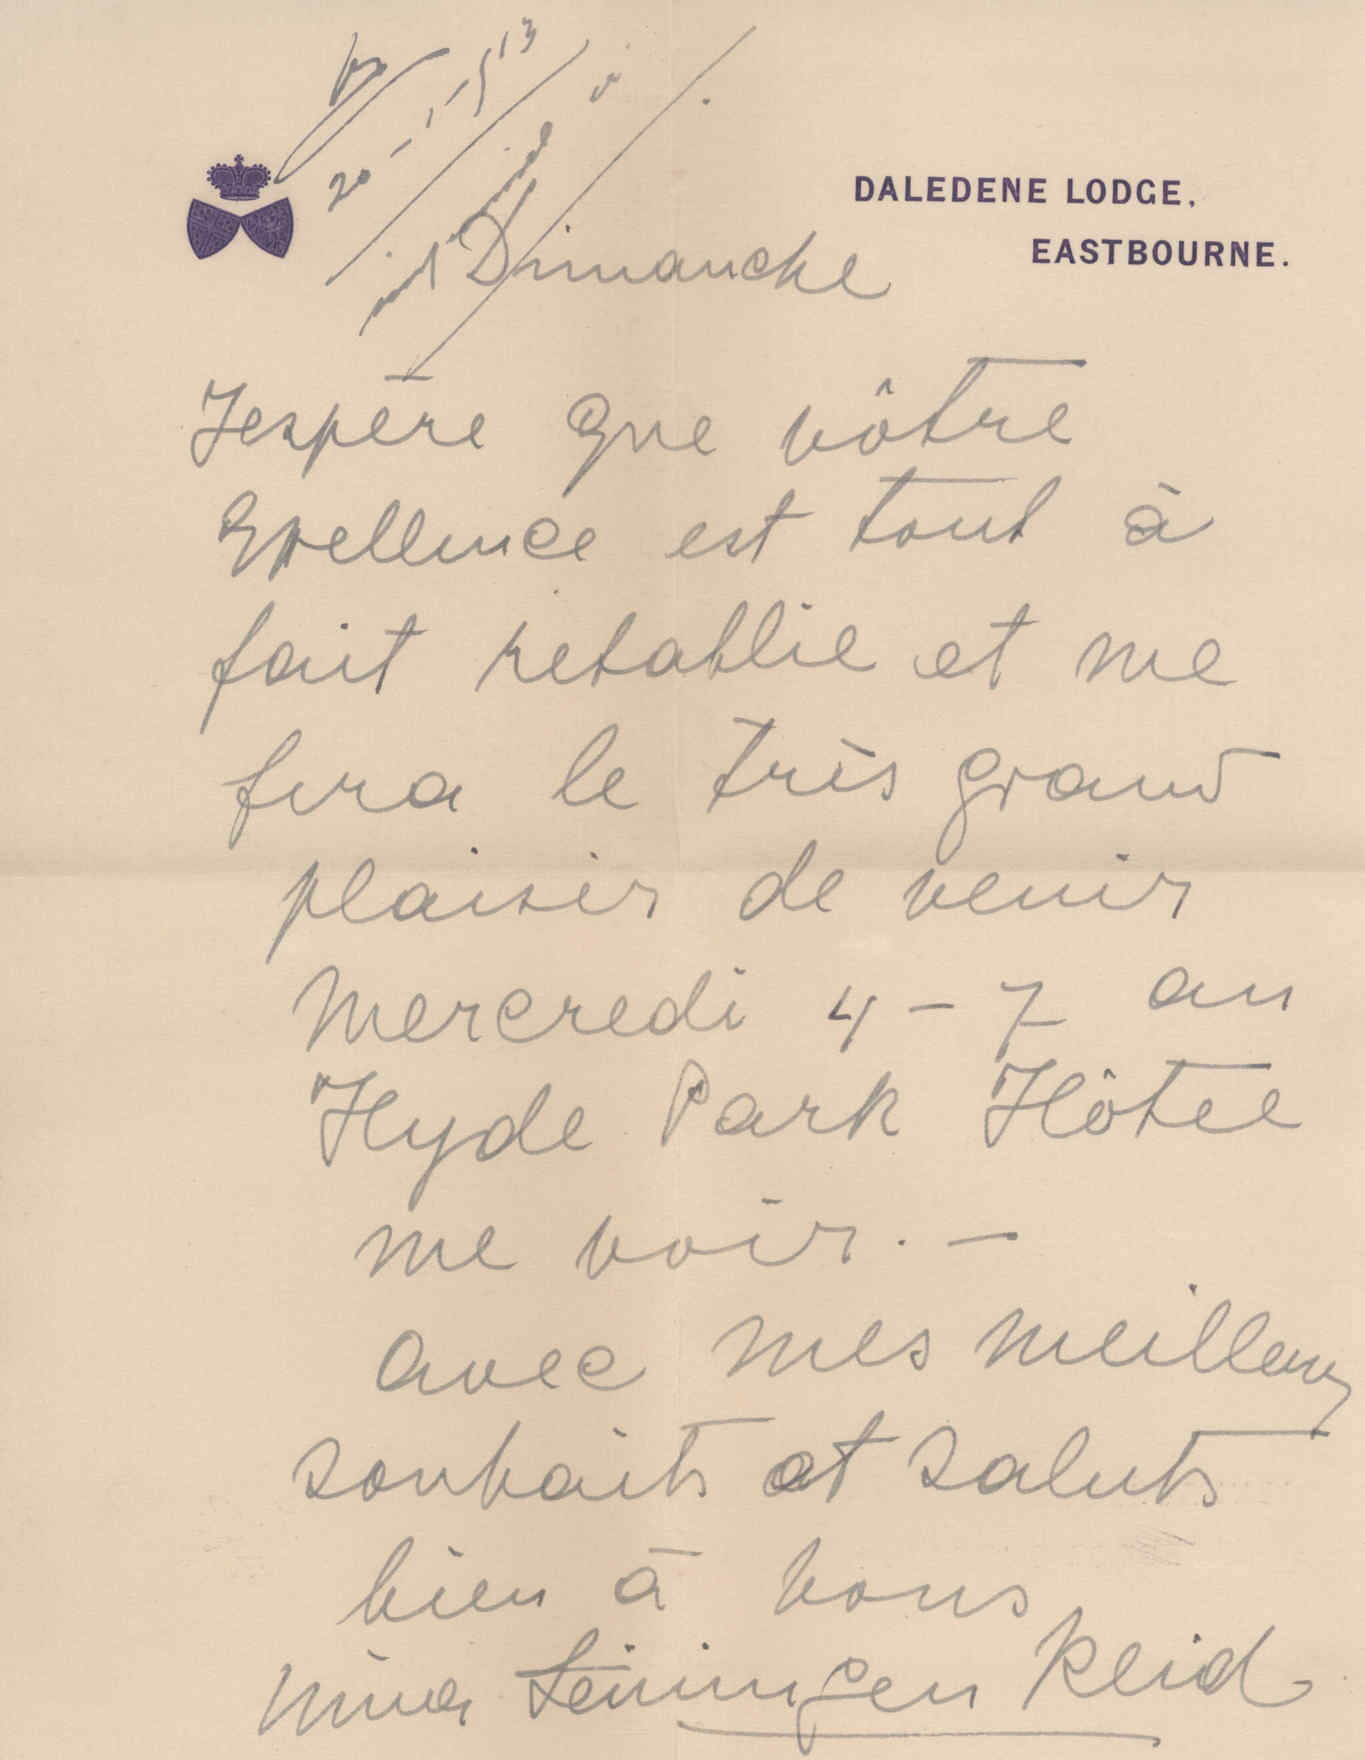 20-1-1913
DALEDENE LODGE,
EASTBOURNE.
Dimanche
Jespère que vôtre
Exellence est tout à
fait retablie et me
fera le très grand
plaisir de venir
Mercredi 4-7 au
Hyde Park Hôtel
me voir. -
avec mes meilleurs
souhaits et saluts
bien à vous
Nina Leiningen Reid